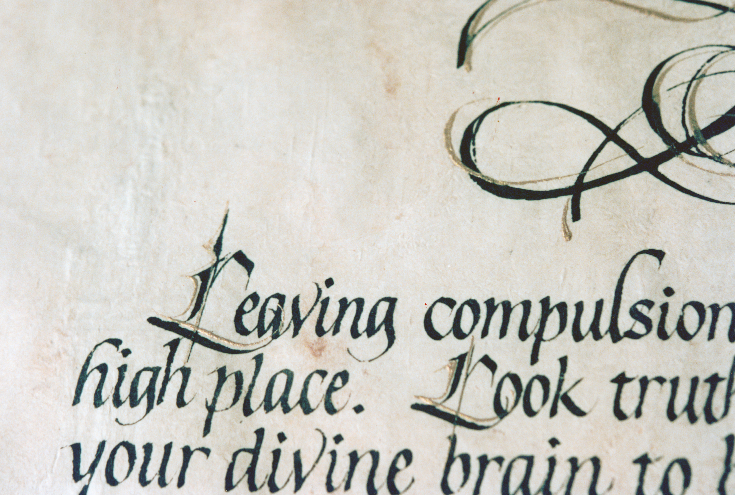 Leaving compulsion
high place. Look truth
your divine brain to